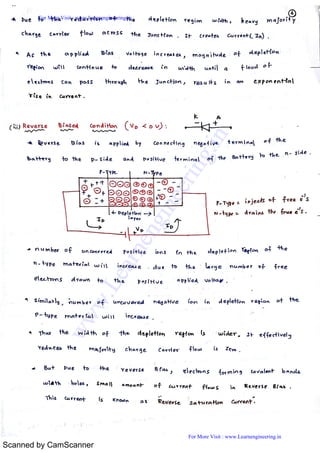 ④
* Due to the reduction of the depletion region width, heavy majority
charge carrier flow across the Junction. It creates Current( ID ).
* As the applied Bias voltage increases, magnitude of depletion
region will continue to decrease in width until a flood of
electrons can pass through the Junction, results in an exponential
rise in Current.
K A
(ii) Reverse Biased Condition ( VD < 0V ) :
* Reverse Bias is applied by Connecting negative terminal of the
Battery to the P-side and positive terminal of the Battery to the N-side.
P-Type N-Type
P-Type : injects of free e⁻s
N-type : drains the free e⁻s.
← Depletion →
layer
ID ID
VD
* number of uncovered positive ions in the depletion region of the
n-type material will increase due to the large number of free
electrons drawn to the positive applied voltage.
* Similarly, number of uncovered negative ion in depletion region of the
P-type material will increase.
* Thus the width of the depletion region is wider. It effectively
reduces the majority charge Carrier flow is zero.
* But Due to the reverse Bias, electrons forming covalent bonds
with holes, small amount of current flows in Reverse Bias.
This current is known as Reverse Saturation Current.
For More Visit : www.Learnengineering.in
Scanned by CamScanner